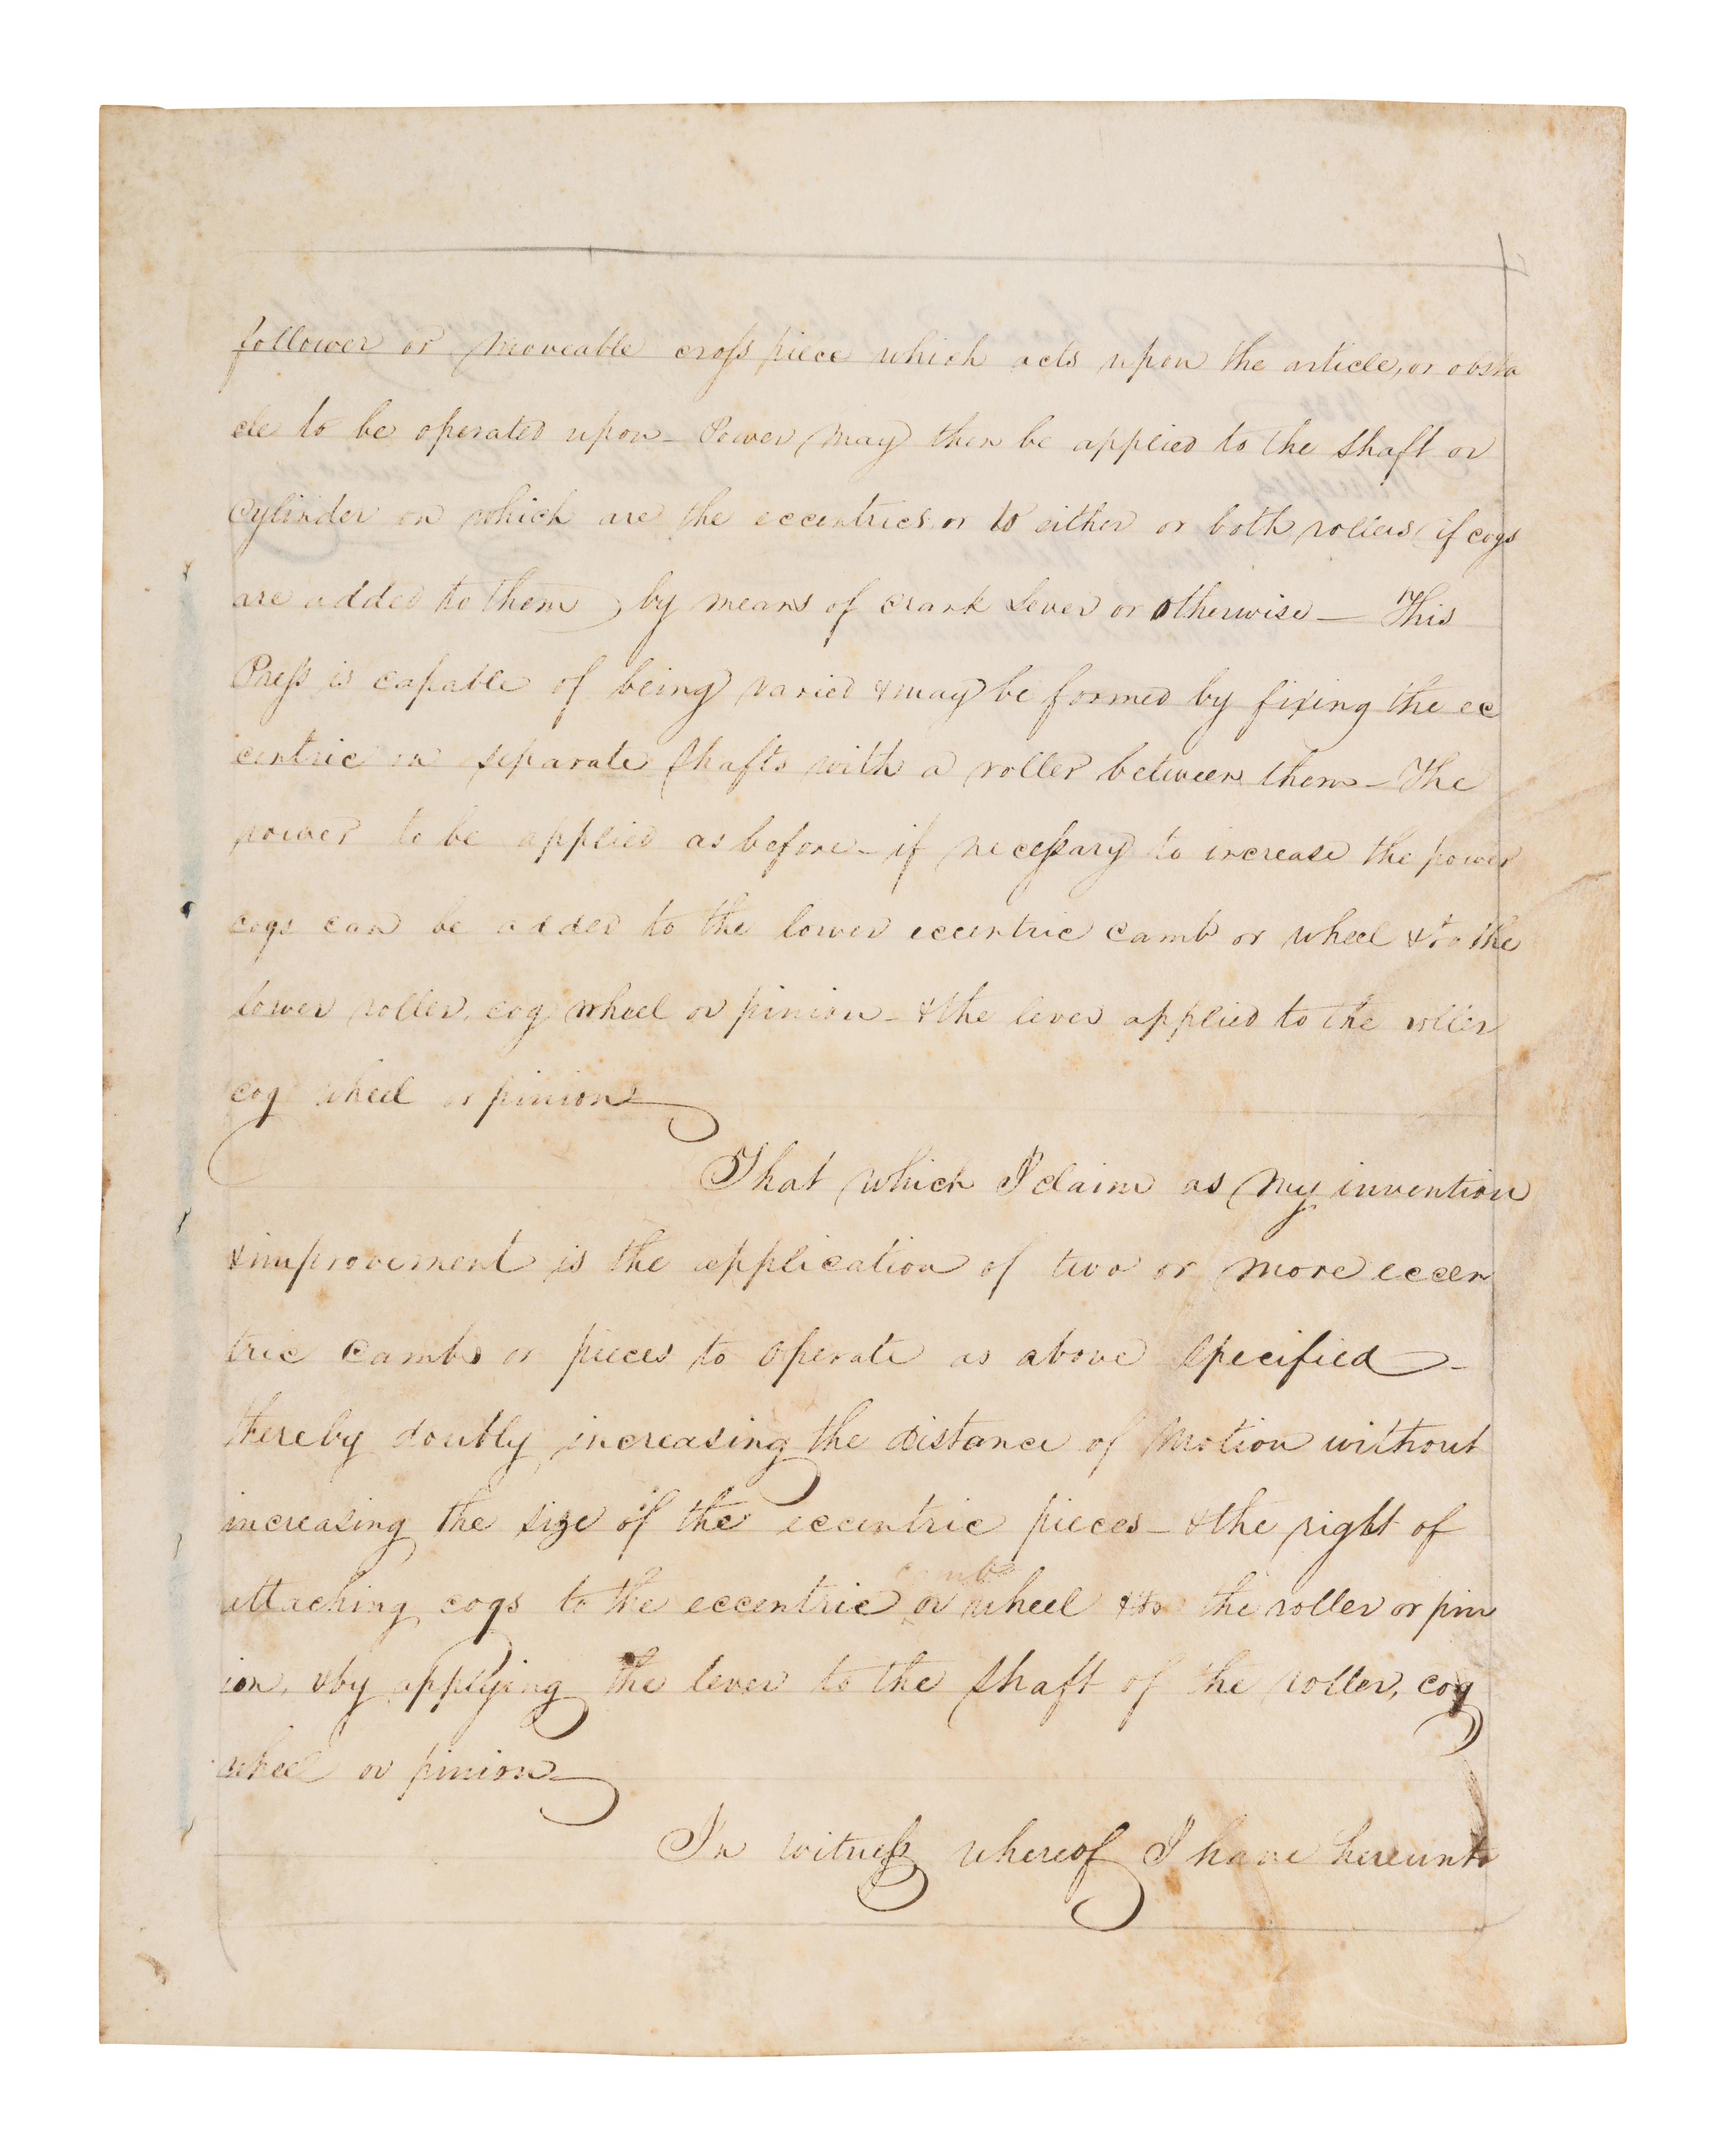 follower or moveable cross piece which acts upon the article, or obsta
cle to be operated upon - Power may then be applied to the shaft or
cylinder on which are the eccentrics, or to either or both rollers (if cogs
are added to them) by means of crank Lever or otherwise — This
Press is capable of being varied & may be formed by fixing the ec
centric on separate shafts with a roller between them - The
power to be applied as before - if necessary to increase the power
cogs can be added to the lower eccentric camb or wheel & to the
lower roller, cog wheel or pinion - & the lever applied to the roller
cog wheel or pinion
That which I claim as my invention
& improvement is the application of two or more eccen
tric cambs or pieces to operate as above specified -
thereby doubly increasing the distance of motion without
increasing the size of the eccentric pieces - & the right of
camb
attaching cogs to the eccentric or wheel & to the roller or pin
ion, & by applying the lever to the shaft of the roller, cog
wheel or pinion
In witness whereof I have hereunto